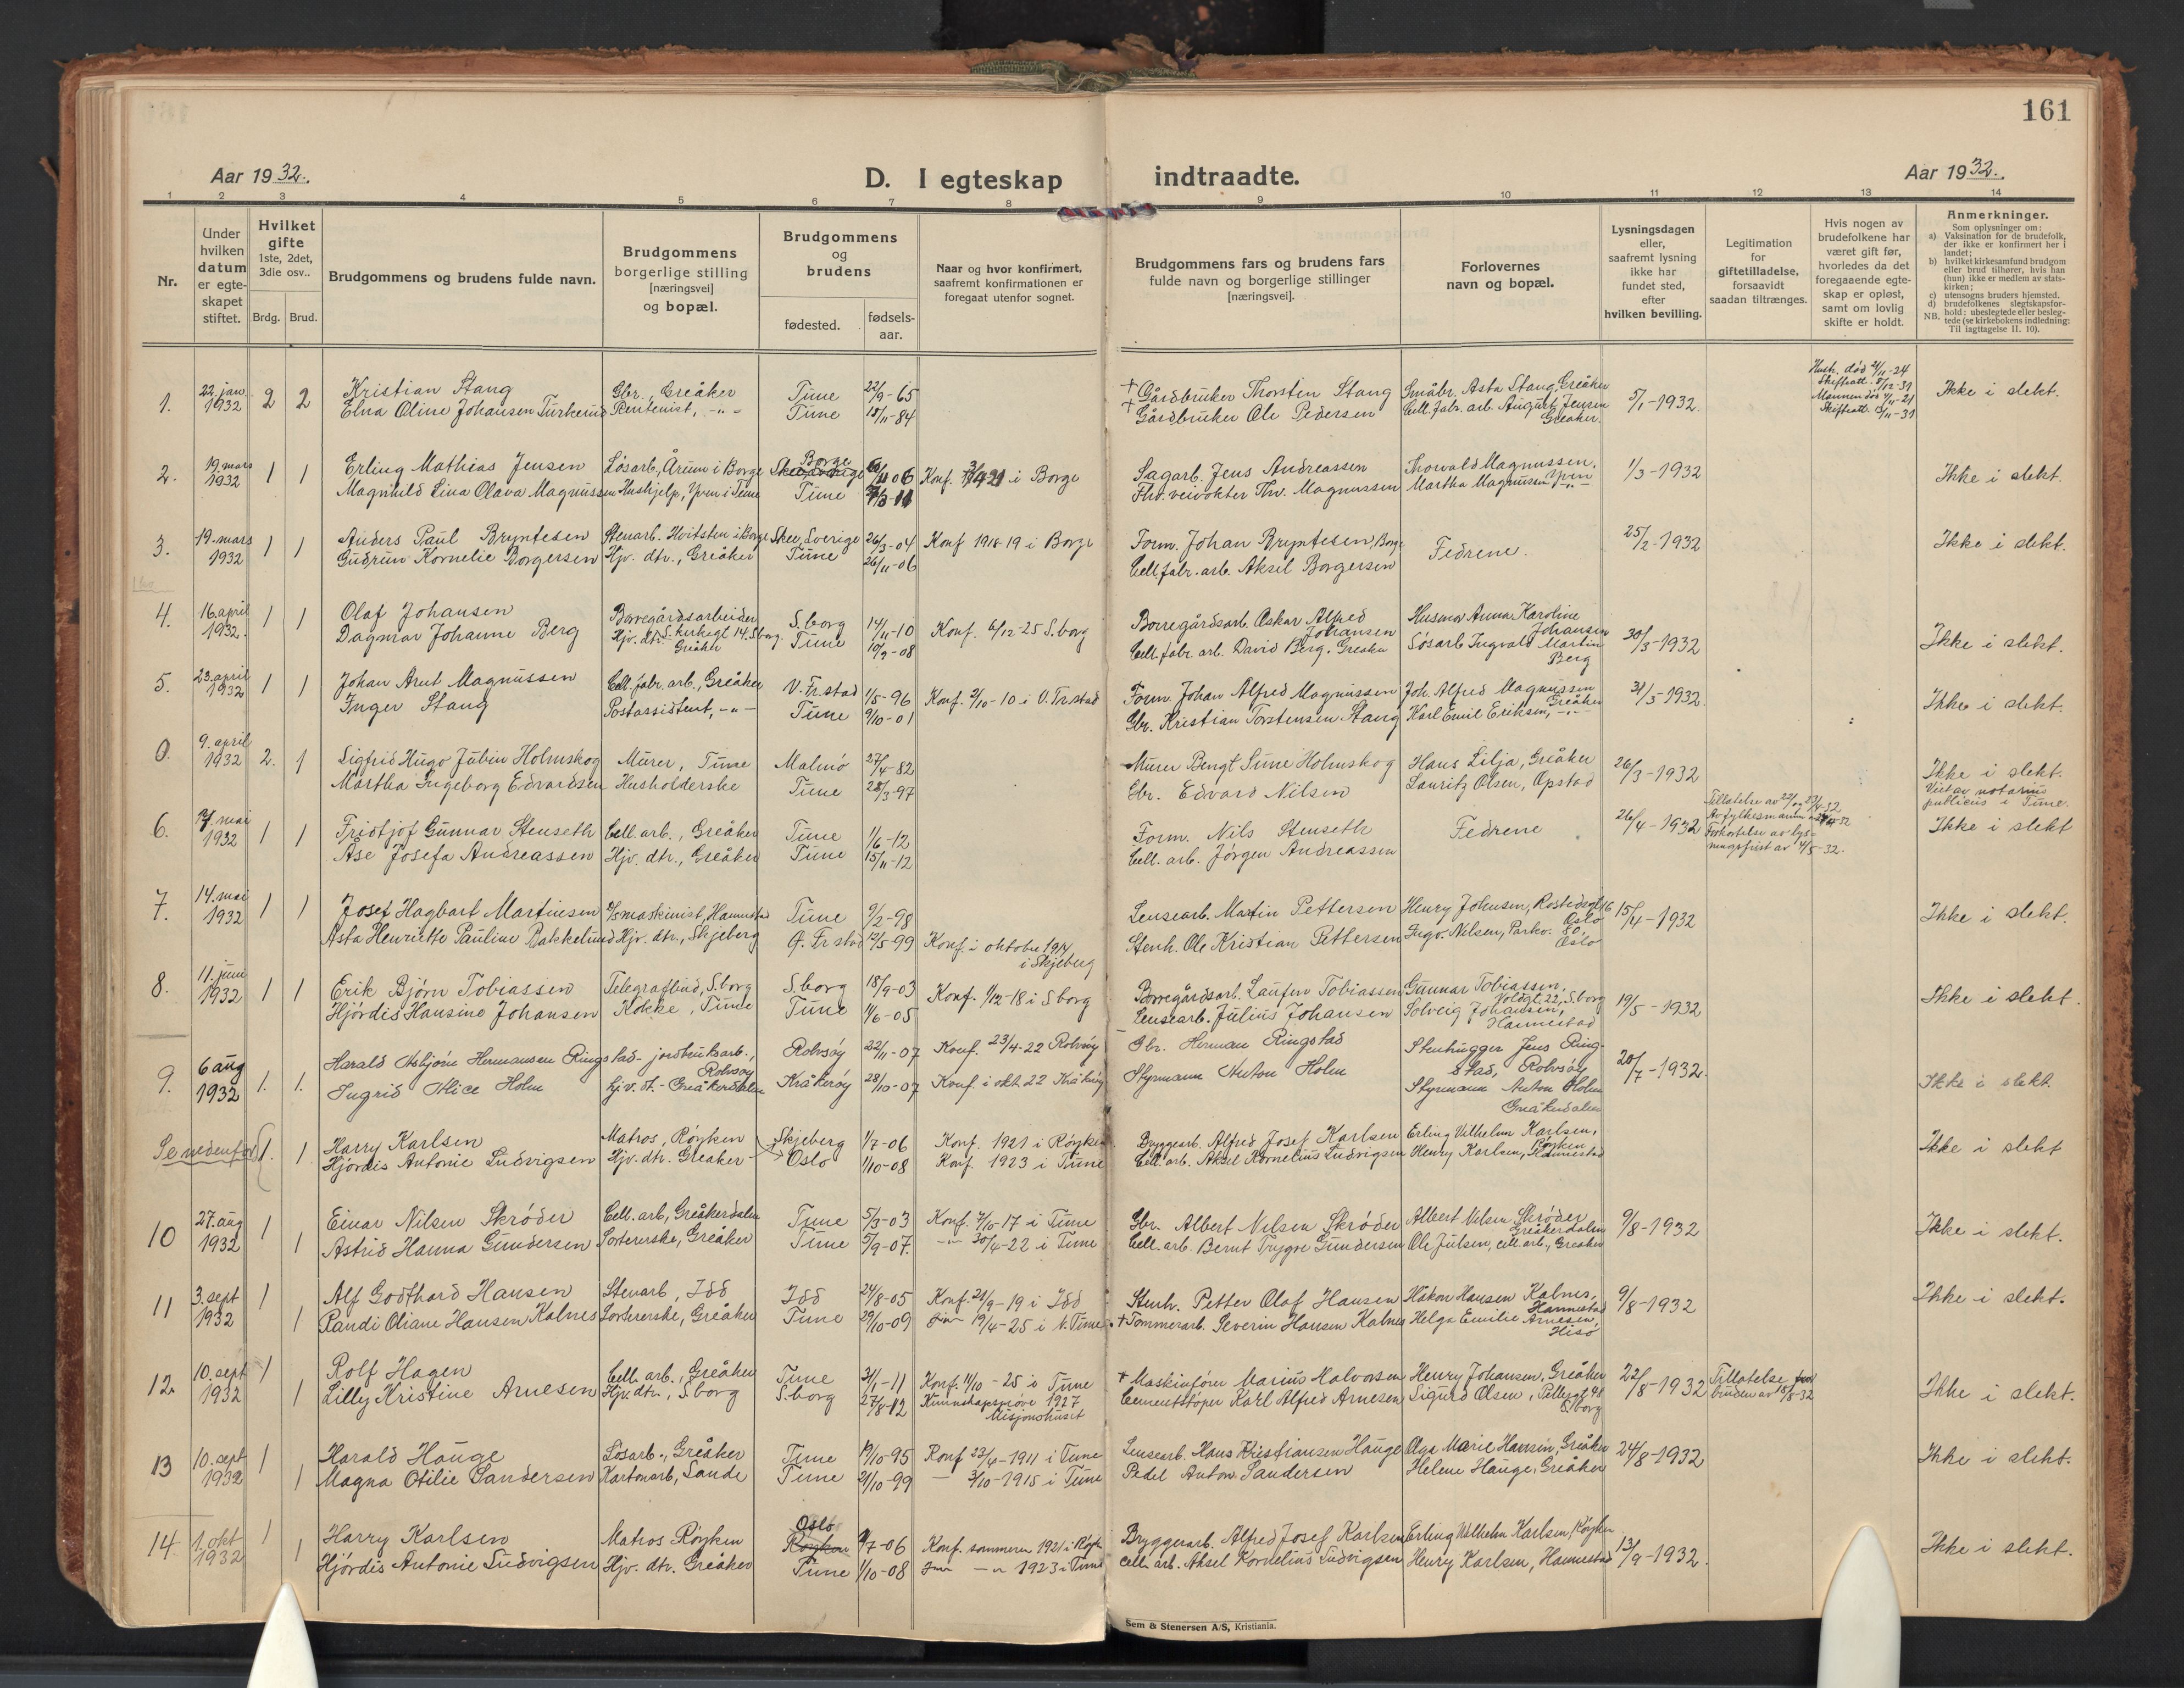 161
Aar 1932.
D. I egteskap indtraadte.
Aar 1932.
1 2 3 4 5 6 7 8 9 10 11 12 13 14
Nr.
Under hvilken datum er egteskapet stiftet.
Hvilket gifte 1ste, 2det, 3die osv..
Brdg. Brud.
Brudgommens og brudens fulde navn.
Brudgommens borgerlige stilling [næringsvei] og bopæl.
Brudgommens og brudens
fødested.
fødselsaar.
Naar og hvor konfirmert, saafremt konfirmationen er foregaat utenfor sognet.
Brudgommens fars og brudens fars fulde navn og borgerlige stillinger [næringsvei].
Forlovernes navn og bopæl.
Lysningsdagen eller, saafremt lysning ikke har fundet sted, efter hvilken bevilling.
Legitimation for giftetilladelse, forsaavidt saadan tiltrænges.
Hvis nogen av brudefolkene har været gift før, hvorledes da det foregaaende egteskap er opløst, samt om lovlig skifte er holdt.
Anmerkninger.
Som oplysninger om:
a) Vaksination for de brudefolk, der ikke er konfirmert her i landet;
b) hvilket kirkesamfund brudgom eller brud tilhører, hvis han (hun) ikke er medlem av statskirken;
c) utensogns bruders hjemsted.
d) brudefolkenes slegtskapsforhold: ubeslegtede eller beslegtede (se kirkebokens indledning: Til iagttagelse II. 10).
NB.
1. 22. jan. 1932 2 2
Kristian Stang Gbr., Greåker Tune 22/9-65 + Gårdbruker Thorsten Stang Småbr. Asta Stang, Greåker 5/1-1932.
Elna Oline Johansen Turkerud Rentenist, -"- Tune 18/11-84 + Gårdbruker Ole Pedersen Cell. fabr. arb. August Jensen Greåker.
Hust. død 21/11-24
Skifteatt. 5/12-31
Mannen død 4/11-21
Skifteatt. 13/11-31
Ikke i slekt.
2. 19. mars 1932 1 1
Erling Mathias Jensen Løsarb, Årum i Borge Borge 6/11 06 Konf. 3/4 21 i Borge Sagarb. Jens Andreassen Thorvald Magnussen, 1/3-1932
Magnhild Lina Olava Magnussen Hushjelp, Yven i Tune Tune Fhv. veivokter Thv. Magnussen Martha Magnussen Yven
Ikke i slekt.
3. 19. mars 1932 1 1
Anders Paul Bryntesen Stenarb. Hvitsten i Borge Skee, Sverige 26/3-04 Konf 1918-19 i Borge Form. Johan Bryntesen, Borge Fedrene. 25/2-1932
Gudrun Kornelie Borgersen Hjv. dtr., Greåker Tune 26/11-06 Cell. fabr. arb. Aksel Borgersen
Ikke i slekt.
4. 16. april 1932. 1 1
Olaf Johansen Borregårdsarbeider S. kirkegt 14. S.borg. S. borg 14/11-10 Konf. 6/12-25 S. borg Borregårdsarb. Oskar Alfred Johansen Husmor Anna Karoline Johansen 30/3-1932
Dagmar Johanne Berg Hjv. dtr. Greåker Tune 10/9-08 Cell. fabr. arb. David Berg. Greåker Løsarb Ingvald Martin Berg
Ikke i slekt.
5. 23. april 1932 1 1
Johan Arnt Magnussen Cell. fabr. arb., Greåker V. Fr.stad 1/5-96 Konf. 2/10-10 i V. Fr.stad Form. Johan Alfred Magnussen Joh. Alfred Magnussen Greåker 31/3-1932
Inger Stang Postassistent, -"- Tune 9/10-01 Gbr. Kristian Torstensen Stang Karl Emil Eriksen, -"-
Ikke i slekt.
0. 9. april 1932 2. 1
Sigfrid Hugo Jubin Holmskog Murer, Tune Malmø 27/4-82 Murer Bengt Sune Holmskog Hans Lilja, Greåker 26/3-1932
Martha Ingeborg Edvardsen Husholderske Tune 28/3-97 Gbr. Edvard Nilsen Lauritz Olsen, Opstad
Ikke i slekt.
Viet av notarius publicus i Tune.
6. 17. mai 1932 1 1
Fridtjof Gunnar Stenseth Cell. arb., Greåker Tune 1/6-12 Form. Nils Stenseth Fedrene 26/4-1932
Åse Josefa Andreassen Hjv. dtr., Greåker Tune 15/11-12 Cell. arb. Jørgen Andreassen
Forkortelse av lysningsfrist av 4/5-32.
Ikke i slekt
7. 14. mai 1932 1 1
Josef Hagbart Martinsen Hannestad Tune 9/2-98 Lensearb. Martin Pettersen Henry Johnsen, Oslo 15/4-1932
Asta Henriette Pauline Bakkelund Hjv. dtr., Skjeberg Ø. Fr stad 12/5-99 Konf. i oktober 1914 i Skjeberg Stenh. Ole Kristian Pettersen Ingv. Nilsen, Parkv. 80, Oslo
Ikke i slekt.
8. 11. juni 1932 1 1
Erik Bjørn Tobiassen S.borg S.borg 18/9-03 Konf. 1/12-18 i S borg Borregårdsarb. Laufen Tobiassen Gunnar Tobiassen, Voldgt. 22, S.borg 19/5-1932
Hjørdis Hansine Johansen Kokke, Tune Tune 4/6-05 Lensearb. Julius Johansen Solveig Johansen, Hannestad
Ikke i slekt.
9. 6 aug 1932 1. 1.
Harald Asbjørn Hermansen Ringstad - jordbruksarb., Rolvsøy Rolvsøy 22/11-07 Konf. 23/4-22 Rolvsøy Gbr. Herman Ringstad Stenhugger Jens Ringstad, Rolvsøy 20/7-1932.
Ingrid Alice Holm hjv. dt. - Greåkerdalen Kråkerøy 28/10-07 Konf. i okt. 22 Kråkerøy Styrmann Anton Holm Styrmann Anton Holm Greåkerdalen
Ikke i slekt.
Se nedenfor 1. 1
Harry Karlsen Matros, Røyken Skjeberg 1/7-06 Konf. 1921 i Røyken Bryggearb. Alfred Josef Karlsen Erling Vilhelm Karlsen, Røyken
Hjørdis Antonie Ludvigsen Hjv. dtr. Greåker Oslo 1/10-08 Konf. 1923 i Tune Cell. arb. Aksel Kornelius Ludvigsen Henry Karlsen, Hannestad
Ikke i slekt
10 27. aug 1932 1 1
Einar Nilsen Skrøder Cell. arb, Greåkerdalen Tune 5/3-03 Konf. 7/10-17 i Tune Gbr. Albert Nilsen Skrøder Albert Nilsen Skrøder Greåkerdalen 9/8-1932
Astrid Hanna Gundersen Sortererske, Greåker Tune 5/9-07. -"- 30/4-22 i Tune Cell. arb. Bernt Trygve Gundersen Ole Julsen, cell. arb., Greåker
Ikke i slekt.
11 3. sept 1932 1 1
Alf Godthard Hansen Stenarb, Idd Idd 24/8-05 Konf. 21/9-19 i Idd Stenh. Petter Olaf Hansen Håkon Hansen Kalnes, Hannestad 9/8-1932
Randi Oliane Hansen Kalnes Sortererske, Greåker Tune 29/10-09 19/4-25 i N. Tune + Tømmerarb. Severin Hansen Kalnes Helga Emilie Arnesen, Hisø
Ikke i slekt.
12. 10. sept 1932 1 1
Rolf Hagen Cell. arb., Greåker Tune 31/1-11 Konf. 11/10-25 i Tune + Maskinfører Marius Halvorsen Henry Johansen, Greåker 22/8-1932 Tillatelse for bruden av 18/8-32
Lilly Kristine Arnesen Hjv. dtr., S.borg S.borg 27/8-12 Kunnskapsprøve 1927 Misjonshuset Cementstøper Karl Alfred Arnesen Sigurd Olsen, S.borg
Ikke i slekt.
13 10. sept 1932 1 1
Harald Hauge Løsarb., Greåker Tune 19/10-95 Konf 23/4-1911 i Tune Lensearb. Hans Kristiansen Hauge Olga Marie Hansen, Greåker 24/8-1932
Magna Otilie Sandersen Kartonarb, Sande Tune 21/10-99 - 3/10-1915 i Tune Pedel Anton Sandersen Helene Hauge, Greåker
Ikke i slekt.
14 1. okt 1932 1 1
Harry Karlsen Matros Røyken Oslo Røyken 1/7-06 Konf. sommeren 1921 i Røyk. Bryggerarb. Alfred Josef Karlsen Erling Vilhelm Karlsen, Røyken 13/9-1932.
Hjørdis Antonie Ludvigsen Hjv. dtr. Greåker Tune 1/10-08 -"- 1923 i Tune Cell. arb. Aksel Kornelius Ludvigsen Henry Karlsen, Hannestad
Ikke i slekt.
Sem & Stenersen A/S, Kristiania.